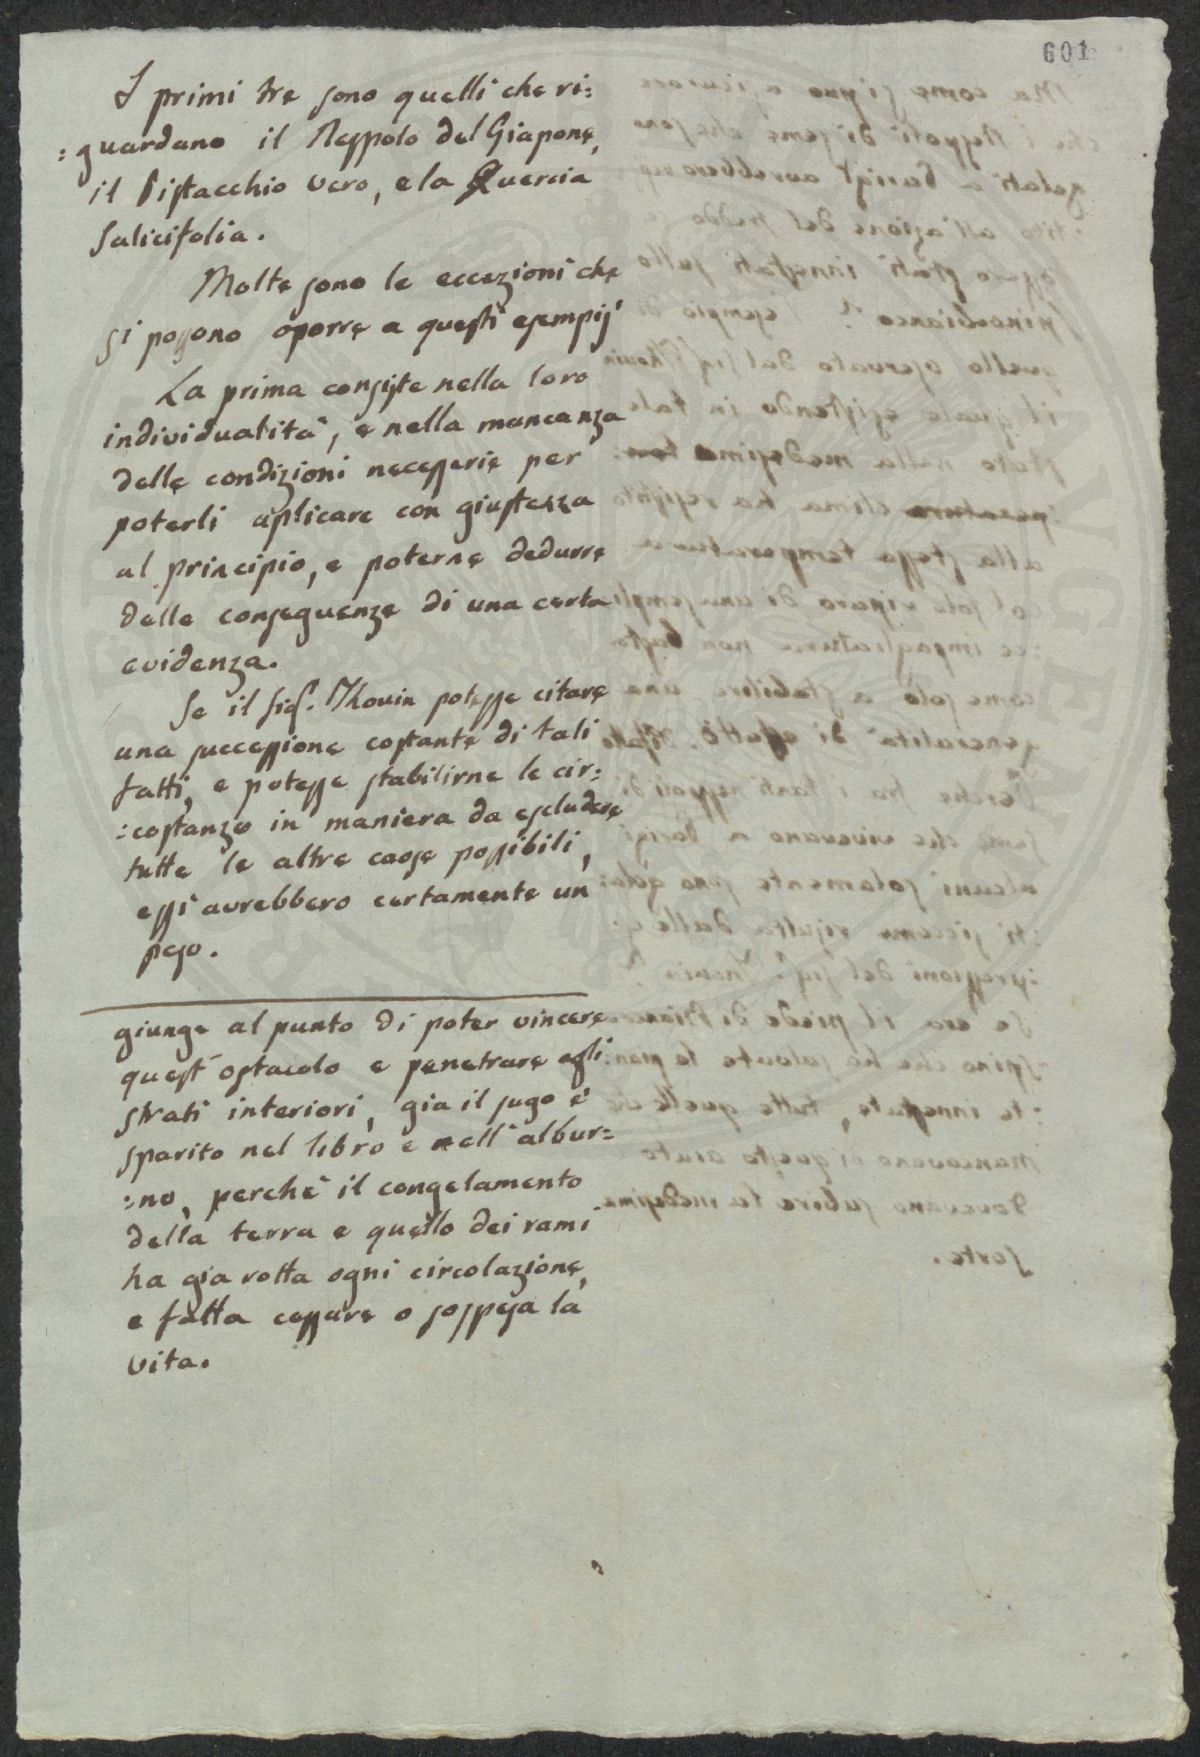 601
I primi tre sono quelli che ri:
:guardano il Nespolo del Giapone,
il Pistacchio vero, e la Quercia
Salicifolia.
Molte sono le eccezioni che
si possono oporre a questi esempij
La prima consiste nella loro
individualità, e nella mancanza
delle condizioni necesserie per
poterli aplicare con giustezza
al principio, e poterne dedurre
delle conseguenze di una certa
evidenza.
Se il Sig.r Thouin potesse citare
una successione costante di tali
fatti, e potesse stabilirne le cir:
:costanze in maniera da escludere
tutte le altre caose possibili,
essi avrebbero certamente un
peso.
giunge al punto di poter vincere
quest'ostacolo e penetrare agli
strati interiori, gia il sugo è
sparito nel libro e nell'albur:
:no, perchè il congelamento
della terra e quello dei rami
ha gia rotta ogni circolazione,
e fatta cessare o sospesa la
vita.